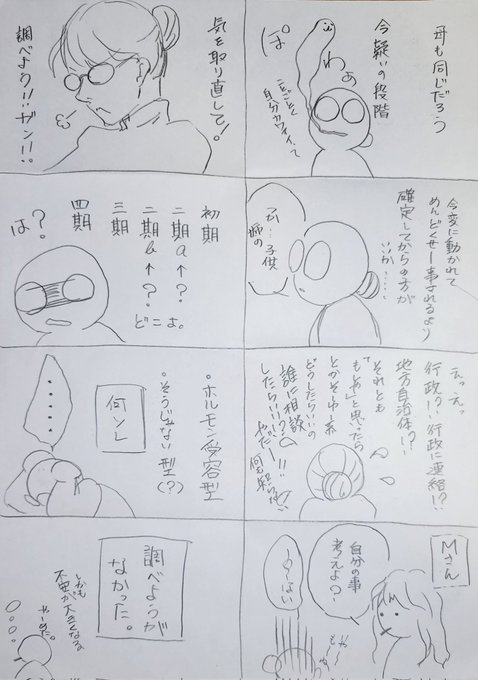 母も同じだろう
今疑いの段階
わぁ
ぽ
ことごとく
自分カワイイって
今変に動かれて
めんどくせー事されるより
確定してからの方が
いいか……
子供
達の
えっえっ
行政?!行政に連絡!?
地方自治体!?
それとも
「もしあ」と思ったら
とかそーゆー系
どうしたらいいの
誰に相談
したらいい!?
やだー!!
Mさん
自分の事
考えよ?
はい
気を取り直して!
調べよう!!ガン!!
初期
二期a↑?
二期b↑?
三期
四期
どこよ。
?
は
。ホルモン受容型
。そうじゃない型(?)
何ソレ
……
調べようが
なかった。
しかも
不安が大きくなる
やーめた。